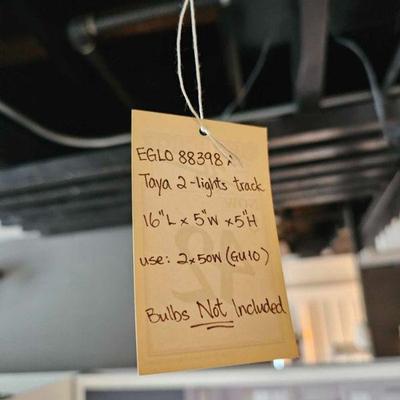 EGLO 88398
Taya 2-lights track
16"L x 5"W x 5"H
use: 2x50W (GU10)
Bulbs Not Included